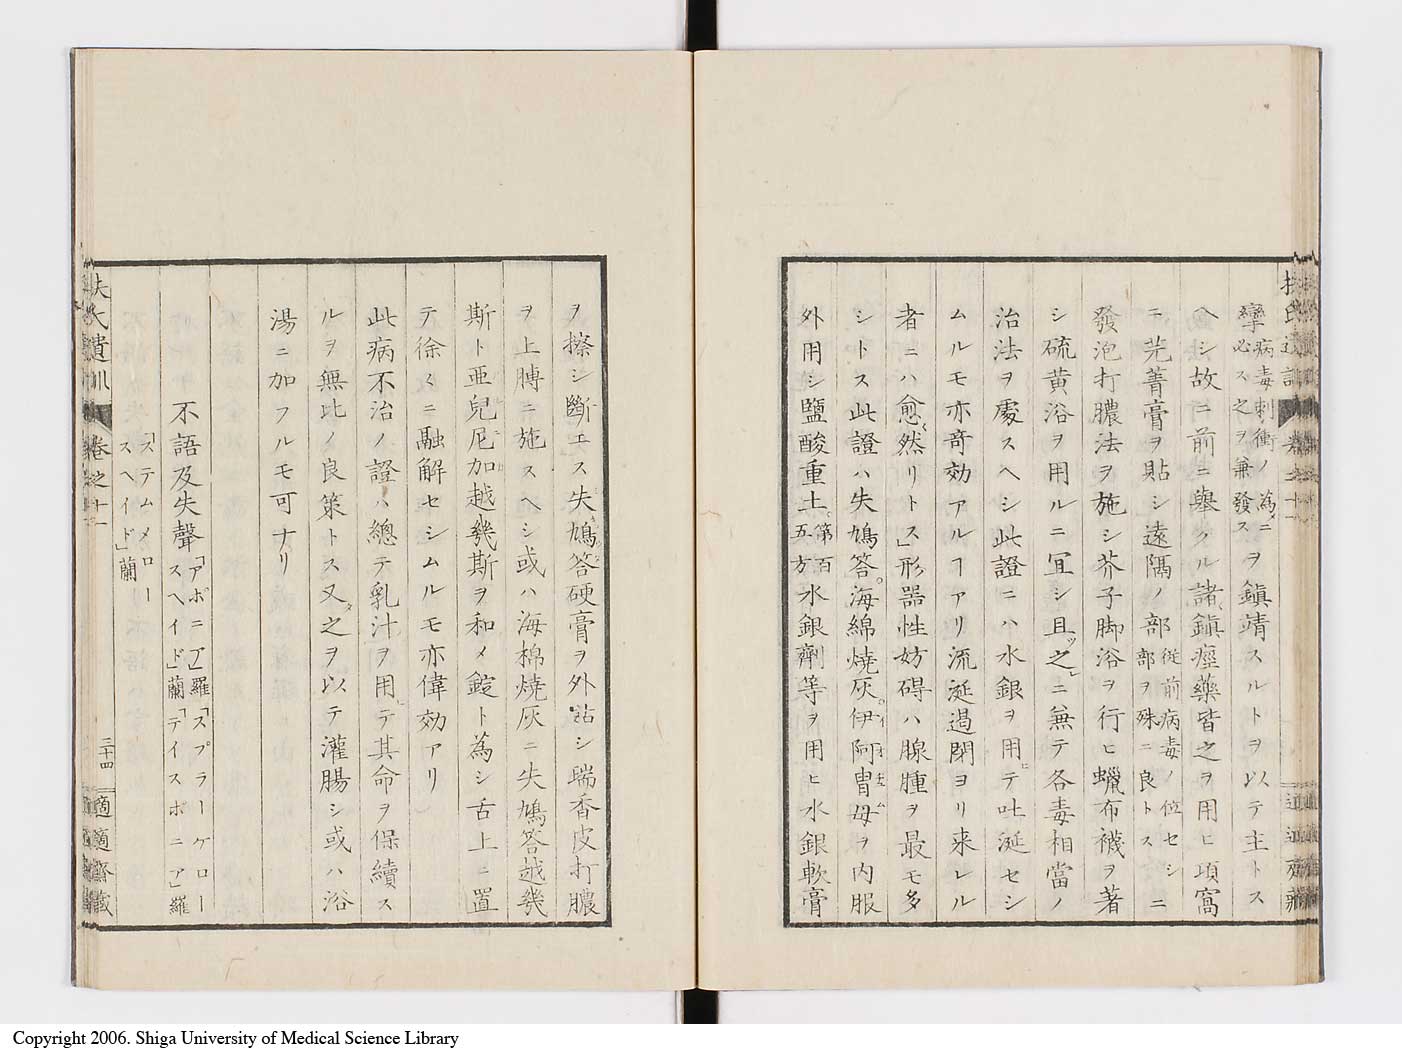 攣病毒刺衝ノ為ニ必ス之ヲ兼發スヲ鎭靖スルトヲ以テ主トス
ヘシ故ニ前ニ擧クル諸鎭痙藥皆之ヲ用ヒ項窩
ニ芫菁膏ヲ貼シ遠隅ノ部従前病毒ノ位セシ部ヲ殊ニ良トスニ
發泡打膿法ヲ施シ芥子脚浴ヲ行ヒ蠟布襪ヲ著
シ硫黄浴ヲ用ルニ冝シ且ツ之レニ兼テ各毒相當ノ
治法ヲ處スヘシ此證ニハ水銀ヲ用ヒテ吐涎セシ
ムルモ亦奇効アルヿアリ流涎過閉ヨリ来レル
者ニハ愈然リトス」形器性妨碍ハ腺腫ヲ最モ多
シトス此證ハ失鳩答海綿燒灰伊阿胄母ヲ内服
外用シ鹽酸重土第百五方水銀劑等ヲ用ヒ水銀軟膏
ヲ擦シ斷エス失鳩答硬膏ヲ外貼シ瑞香皮打膿
ヲ上膊ニ施スヘシ或ハ海棉燒灰ニ失鳩答越幾
斯ト亜兒尼加越幾斯ヲ和メ錠ト為シ舌上ニ置
テ徐々ニ融解セシムルモ亦偉効アリ
此病不治ノ證ハ總テ乳汁ヲ用ヒテ其命ヲ保續ス
ルヲ無比ノ良策トス又タ之ヲ以テ灌腸シ或ハ浴
湯ニ加フルモ可ナリ
不語及失聲「アポニア」羅「スプラーケロースヘイド」蘭「テイスボニア」羅
「ステムメロースヘイド」蘭
扶氏遺訓
卷之十一
三十四
適適齋藏
Copyright 2006. Shiga University of Medical Science Library